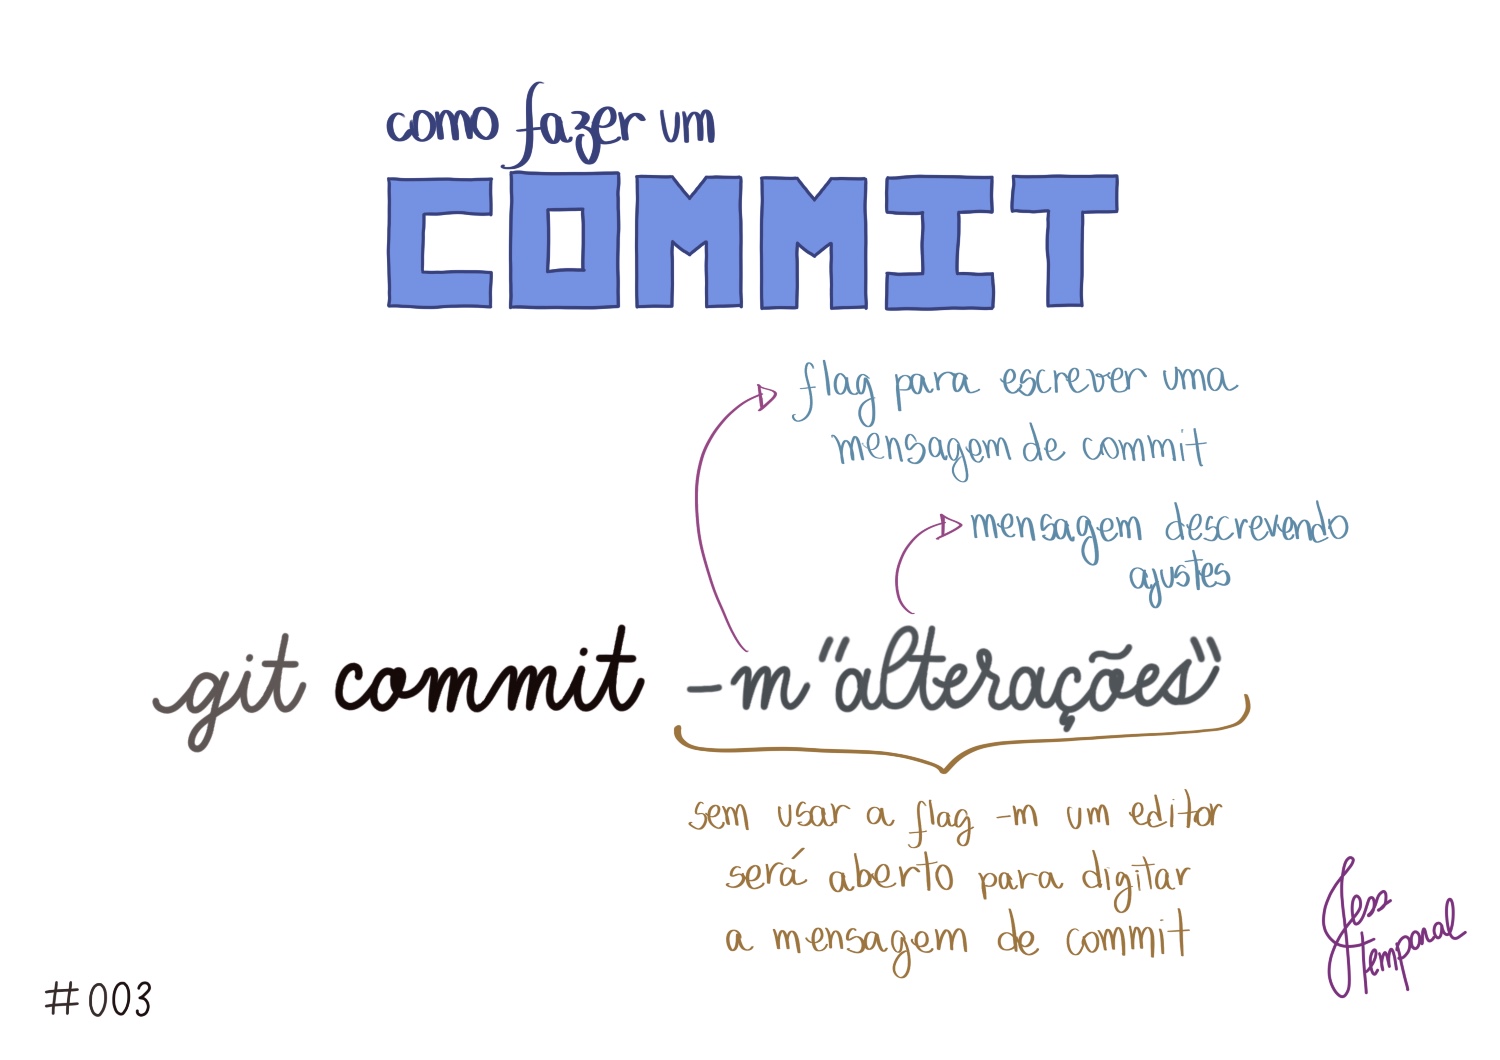 como fazer um
COMMIT
flag para escrever uma
mensagem de commit
mensagem descrevendo
ajustes
git commit -m "alterações"
sem usar a flag -m um editor
será aberto para digitar
a mensagem de commit
Jess
temporal
#003